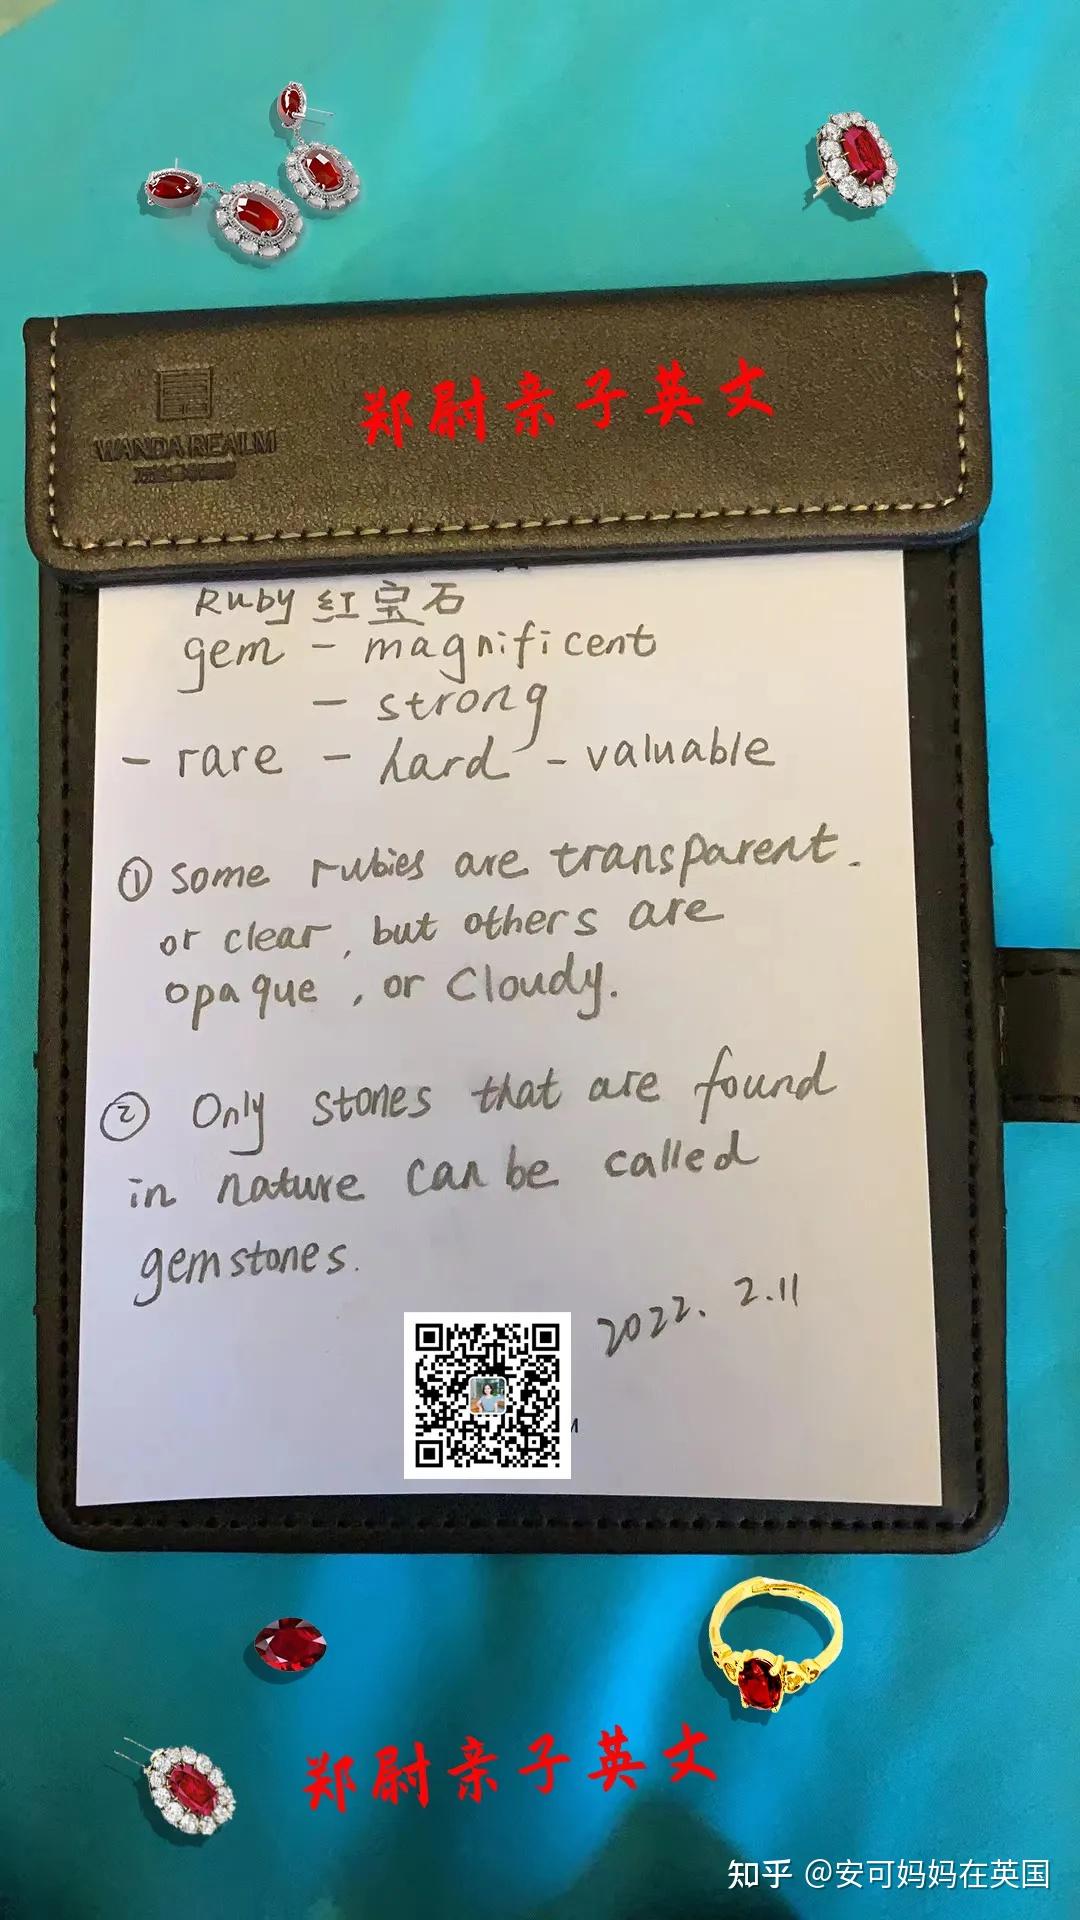 WANDA REALM
郑尉亲子英文
Ruby 红宝石
gem - magnificent
- strong
- rare - hard - valuable
① Some rubies are transparent.
or clear, but others are
opaque, or cloudy.
② Only stones that are found
in nature can be called
gemstones.
2022. 2.11
郑尉亲子英文
知乎 @安可妈妈在英国